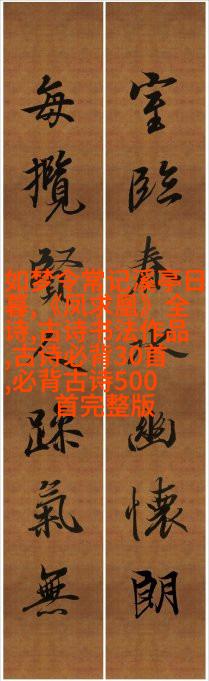 室臨春幽懷朗
每攬賢氣無
如梦令常记溪亭日
暮,《凤求凰》全
诗,古诗书法作品
,古诗必背30首
,必背古诗500
首完整版